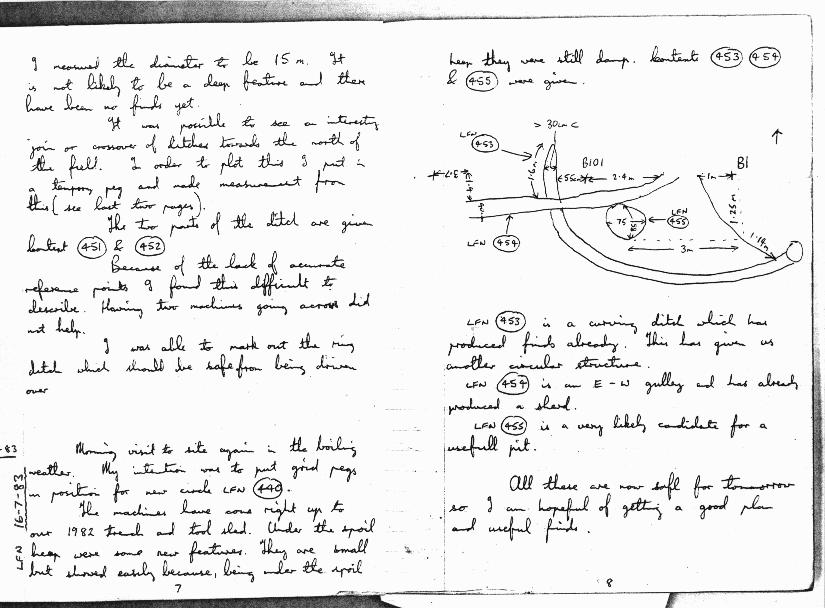 I measured the diameter to be 15 m. It
is not likely to be a deep feature and there
have been no finds yet.
It was possible to see an interesting
join or crossover of ditches towards the north of
the field. In order to plot this I put in
a tempory peg and made measurement from
this (see last two pages).
The two parts of the ditch are given
context 451 & 452
Because of the lack of accurate
reference points I found this difficult to
describe. Having two machines going across did
not help.
I was able to mark out the ring
ditch which should be safe from being driven
over
-83
LFN 16-7-83
Morning visit to site again in the boiling
weather. My intention was to put grid pegs
in position for new circle LFN 440.
The machines have come right up to
our 1982 trench and tool shed. Under the spoil
heap were some new features. They are small
but showed easily because, being under the spoil
7
heap they were still damp. Contexts 453 454
& 455 were given.
> 30cm <
LFN 453
B101
B1
1.6m
55cm
2.4m
1m
1.25m
1.14m
75
LFN 455
LFN 454
3m
LFN 453 is a curving ditch which has
produced finds already. This has given us
another circular structure.
LFN 454 is an E-W gulley and has already
produced a sherd.
LFN 455 is a very likely candidate for a
usefull pit.
All these are now safe for tomorrow
so I am hopeful of getting a good plan
and useful finds.
8